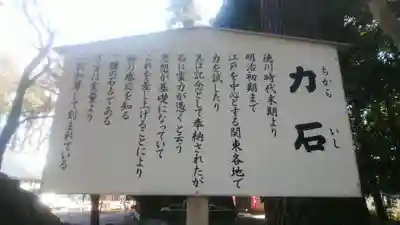 力石
ちから いし
徳川時代末期より
明治初期まで
江戸を中心とする関東各地で
力を試したり
又は記念として奉納されたが
石に霊力が憑くと云う
思想が基礎になっていて
これを差し上げることにより
神の感応を知る
一種の石占である
して刻まれている